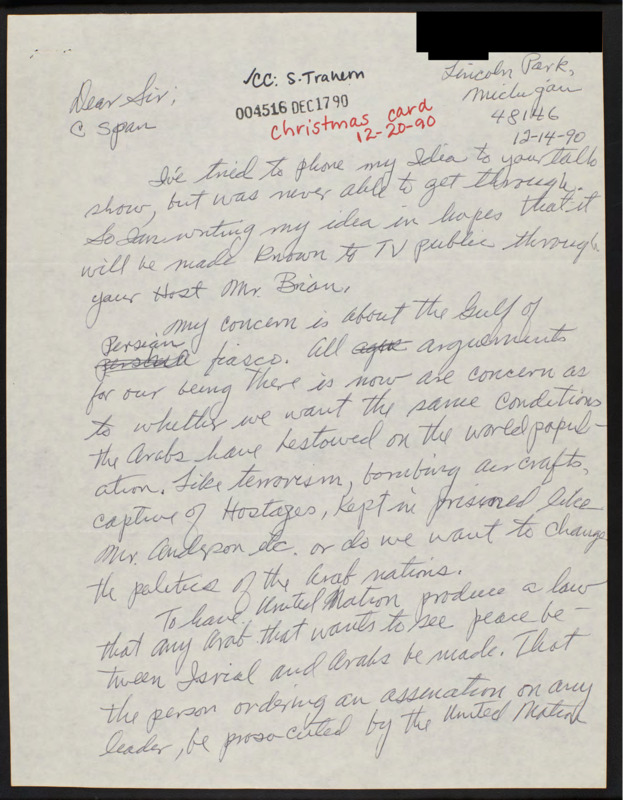 ✓CC: S. Trahern
004516 DEC1790
christmas card
12-20-90
Lincoln Park,
Michigan
48146
12-14-90
Dear Sir;
C Span
I've tried to phone my Idea to your talk
show, but was never able to get through.
So I'am writing my idea in hopes that it
will be made known to TV public through
your Host Mr. Brian.
My concern is about the Gulf of
Persian
fiasco. All arguements
for our being there is now are concern as
to whether we want the same conditions
the Arabs have bestowed on the world popul-
ation. Like terrorism, bombing aircrafts,
captive of Hostages, Kept in prisioned like
Mr. Anderson etc. or do we want to change
the politics of the Arab nations.
To have United Nation produce a law
that any Arab that wants to see peace be-
tween Isrial and Arabs be made. That
the person ordering an assination on any
leader, be prosocuted by the United Nation